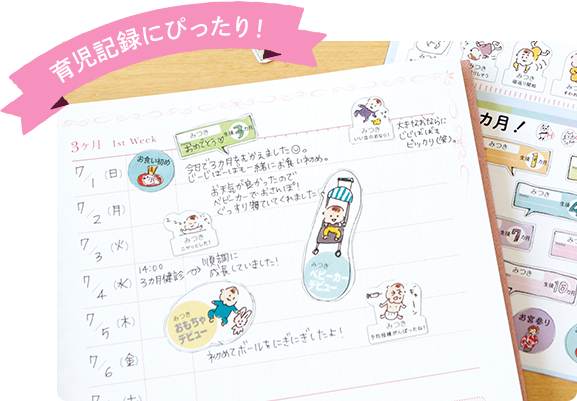 育児記録にぴったり！
3ヶ月 1st Week
みつき
おめでとう
生後3カ月
みつき
いい音のおなら！
大きなおならに
じじばばも
ビックリ(笑)。
7/1(日)
お食い初め
今日で3カ月をむかえました
じーじばーばも一緒にお食い初め。
お天気が良かったので
ベビーカーでおさんぽ！
ぐっすり寝ていてくれました
7/2(月)
7/3(火)
みつき
ニヤッとした！
7/4(水)
14:00
3カ月健診
順調に
成長していました！
みつき
ベビーカー
デビュー
7/5(木)
みつき
おもちゃ
デビュー
みつき
予防接種がんばったね！
7/6(金)
初めてボールをにぎにぎしたよ！
みつき
寝返り開始
カ月！
みつき
生後1カ月
みつき
お宮参り